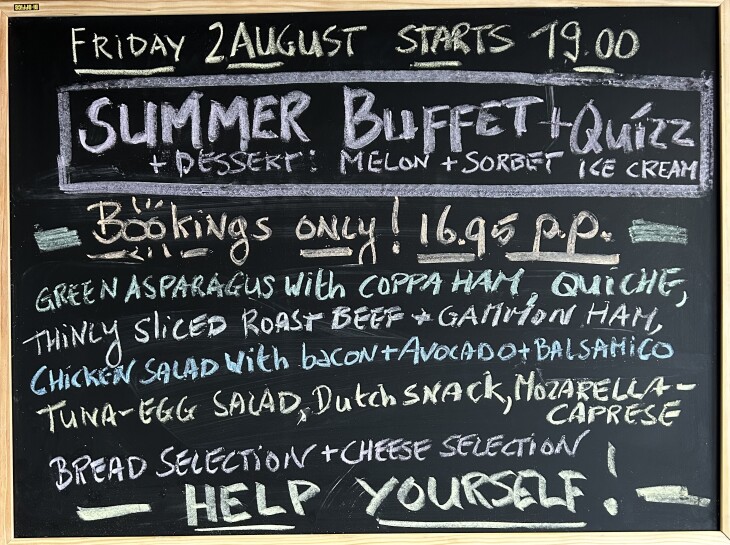 FRIDAY 2 AUGUST STARTS 19.00
SUMMER BUFFET + QUIZZ
+ DESSERT: MELON + SORBET ICE CREAM
BOOKINGS ONLY! 16.95 p.p.
GREEN ASPARAGUS With COPPA HAM, QUICHE,
THINLY SLICED ROAST BEEF + GAMMON HAM,
CHICKEN SALAD With bacon + AVOCADO + BALSAMICO
TUNA-EGG SALAD, Dutch SNACK, MOZARELLA-
CAPRESE
BREAD SELECTION + CHEESE SELECTION
HELP YOURSELF!